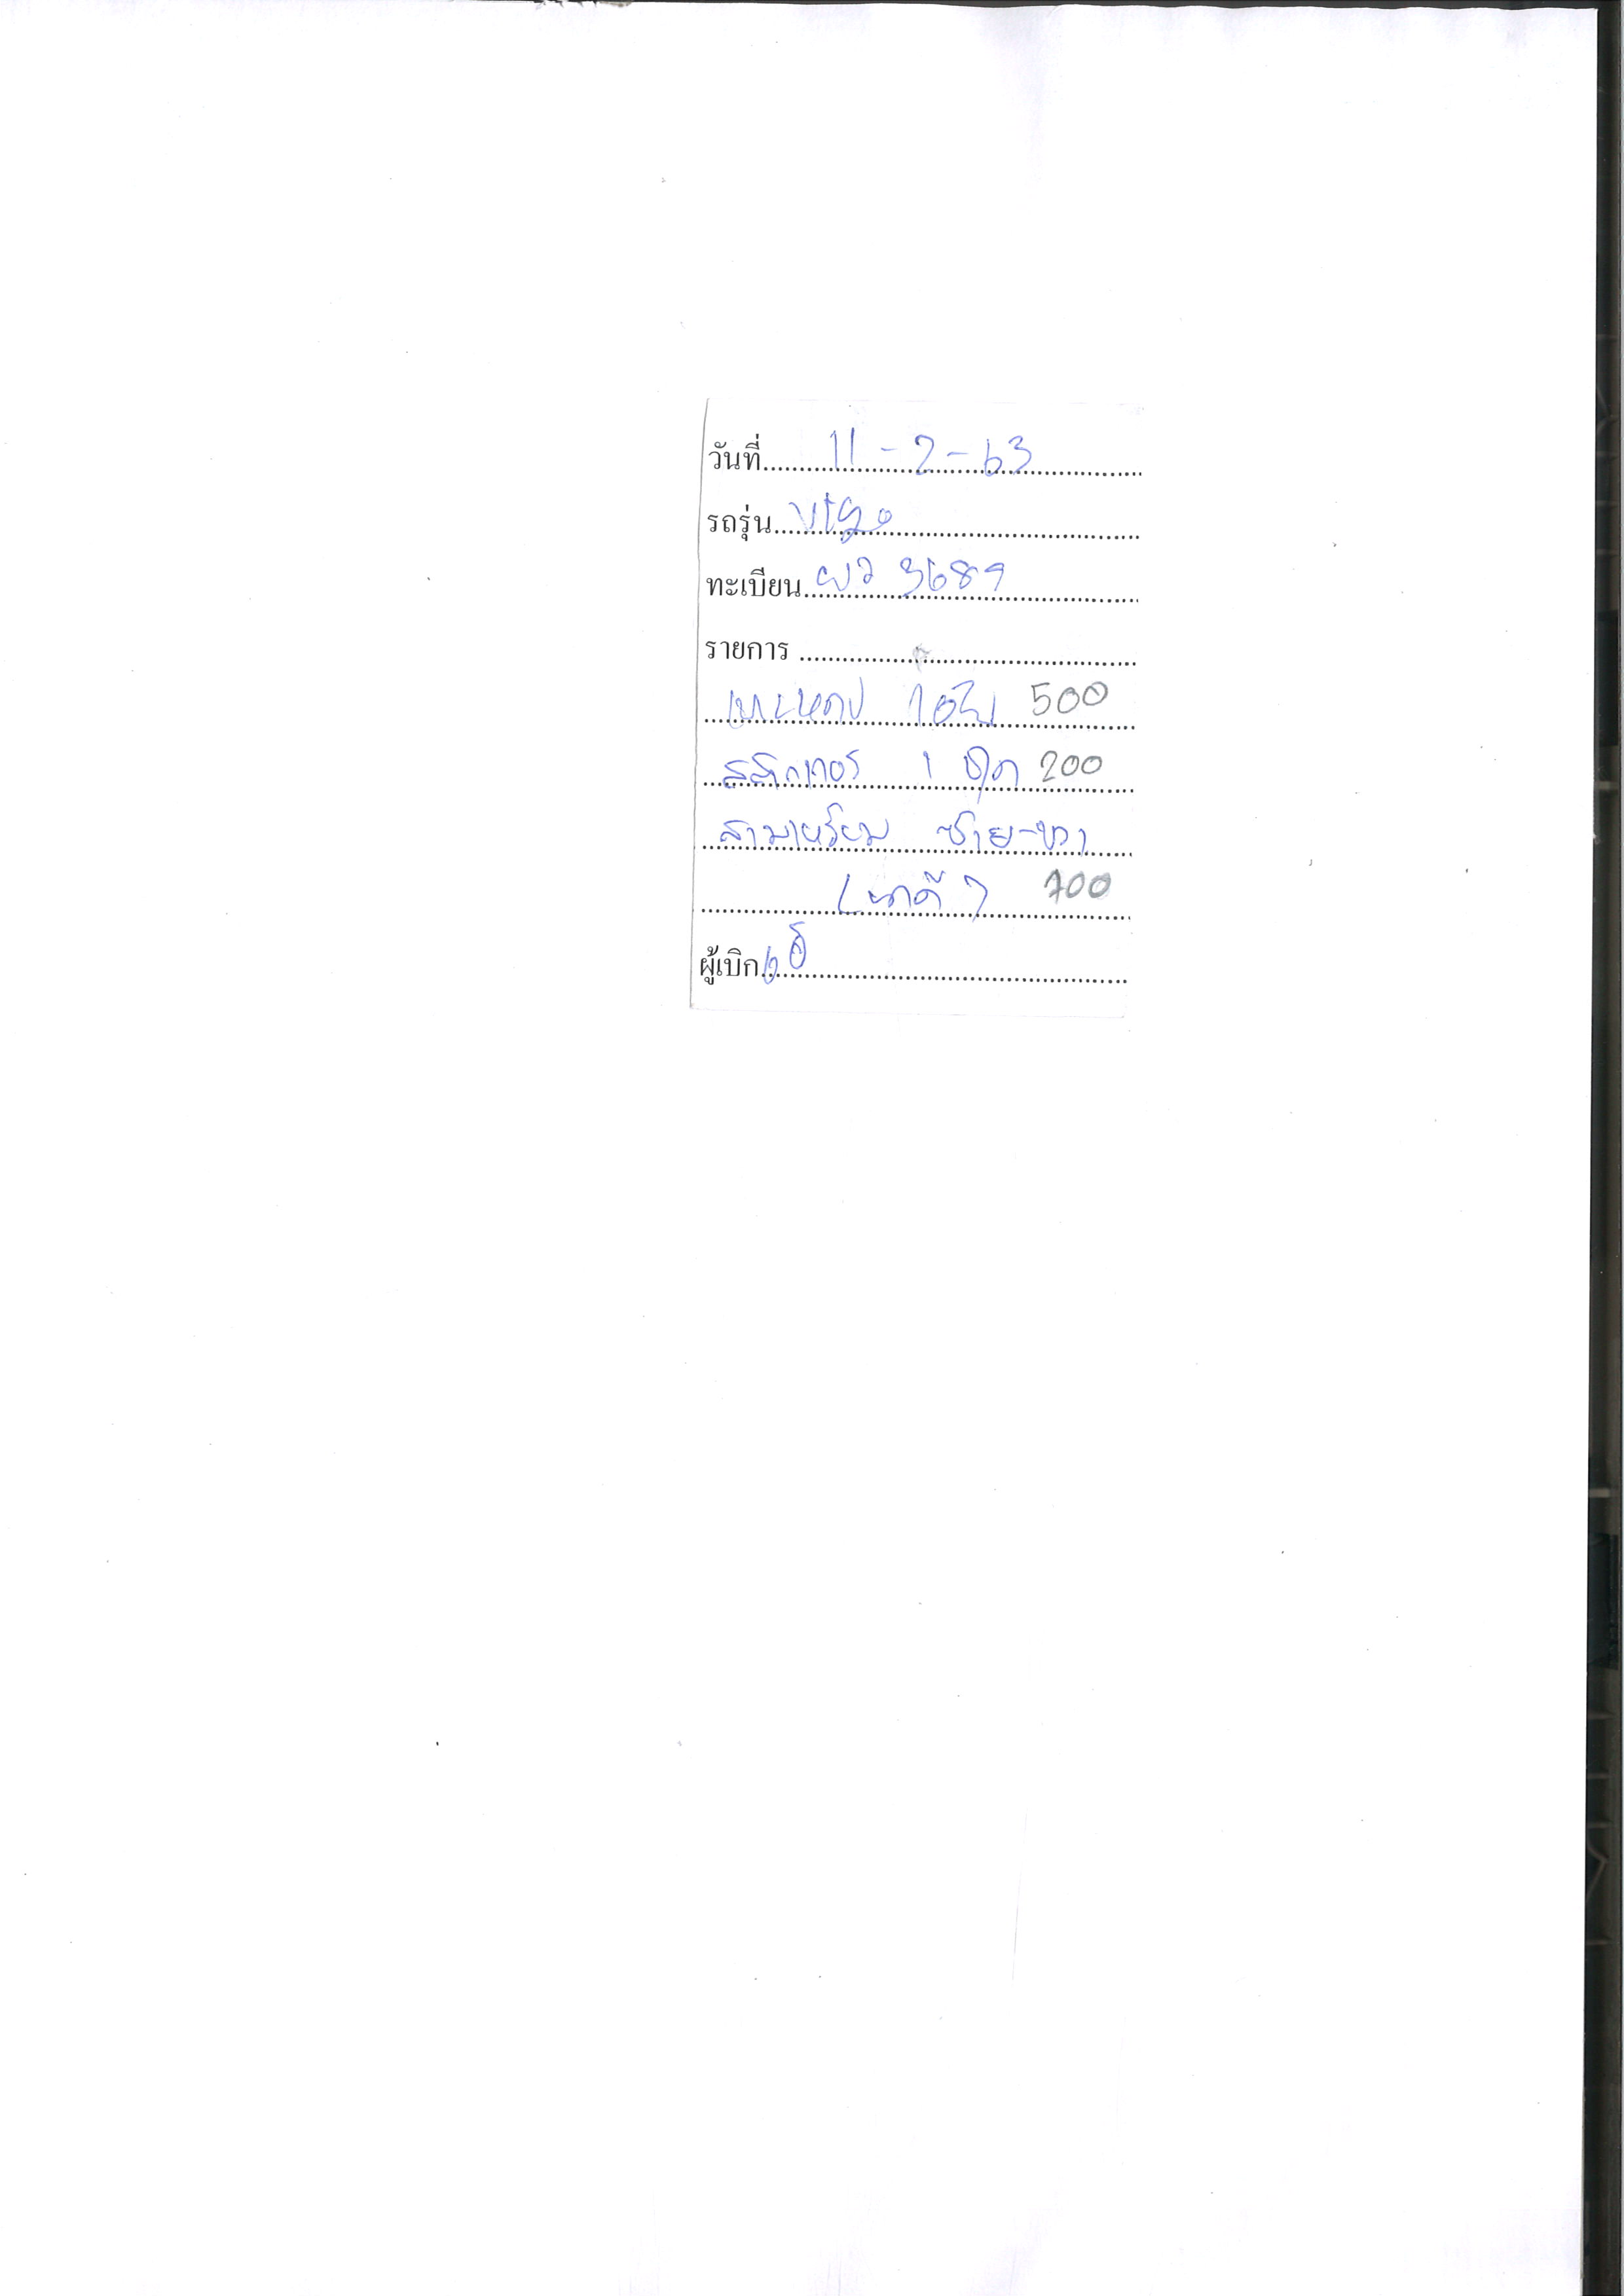 วันที่ 11-2-63
รถรุ่น vigo
ทะเบียน ผว 3689
รายการ
1 อัน 500
สติกเกอร์ 1 ชุด 200
สามเหลี่ยม ซ้าย-ขวา
700
ผู้เบิก